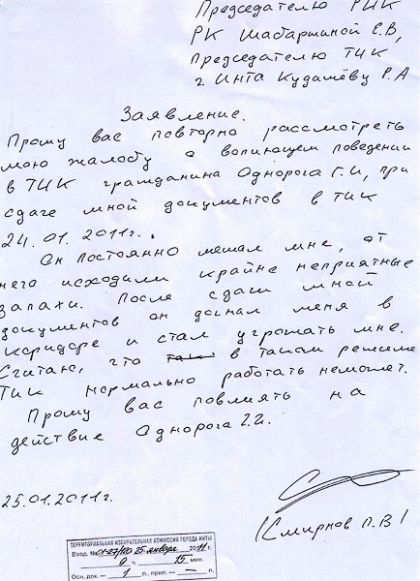 Председателю РИК
РК Шабаршиной Е.В,
Председателю ТИК
г Инта Кудашёву Р.А
Заявление.
Прошу вас повторно рассмотреть
мою жалобу о вопиющем поведении
в ТИК гражданина Однорога Г.И, при
сдаче мной документов в ТИК
24.01.2011г.
Он постоянно мешал мне, от
него исходили крайне неприятные
запахи. После сдачи мной
документов он догнал меня в
коридоре и стал угрожать мне.
Считаю, что в таком режиме
ТИК нормально работать неможет.
Прошу вас повлиять на
действие Однорога Г.И.
25.01.2011г.
(Смирнов П.В)
ТЕРРИТОРИАЛЬНАЯ ИЗБИРАТЕЛЬНАЯ КОМИССИЯ ГОРОДА ИНТЫ
Вход. № 01-27/100 25 января 2011 г.
15 мин.
Осн. док. — 1 л., прил. — л.